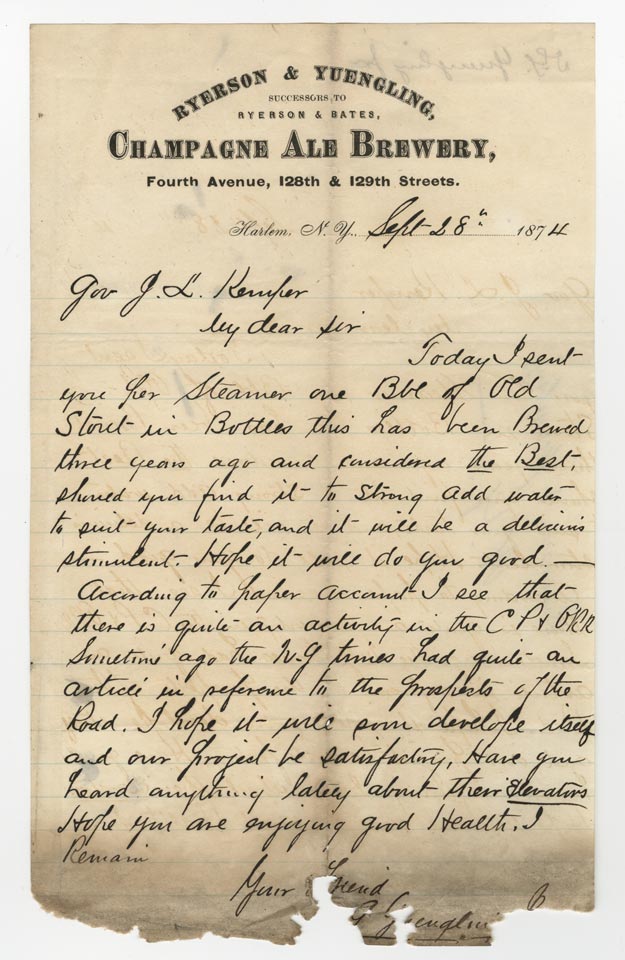 RYERSON & YUENGLING,
SUCCESSORS TO
RYERSON & BATES,
CHAMPAGNE ALE BREWERY,
Fourth Avenue, 128th & 129th Streets.
Harlem, N. Y. Sept 28th 1874
Gov J. L. Kemper
My dear Sir
Today I sent
you per Steamer one Bbl of Old
Stout in Bottles this has been Brewed
three years ago and considered the Best,
should you find it to strong add water
to suit your taste, and it will be a delicious
stimulent. Hope it will do you good. —
According to paper account I see that
there is quite an activity in the C P &
Sometime ago the N-Y times had quite an
article in reference to the prospects of the
Road. I hope it will soon develope itself
and our project be satisfactory, Have you
heard anything lately about their Elevators
Hope you are enjoying good Health. I
Remain
Your Friend